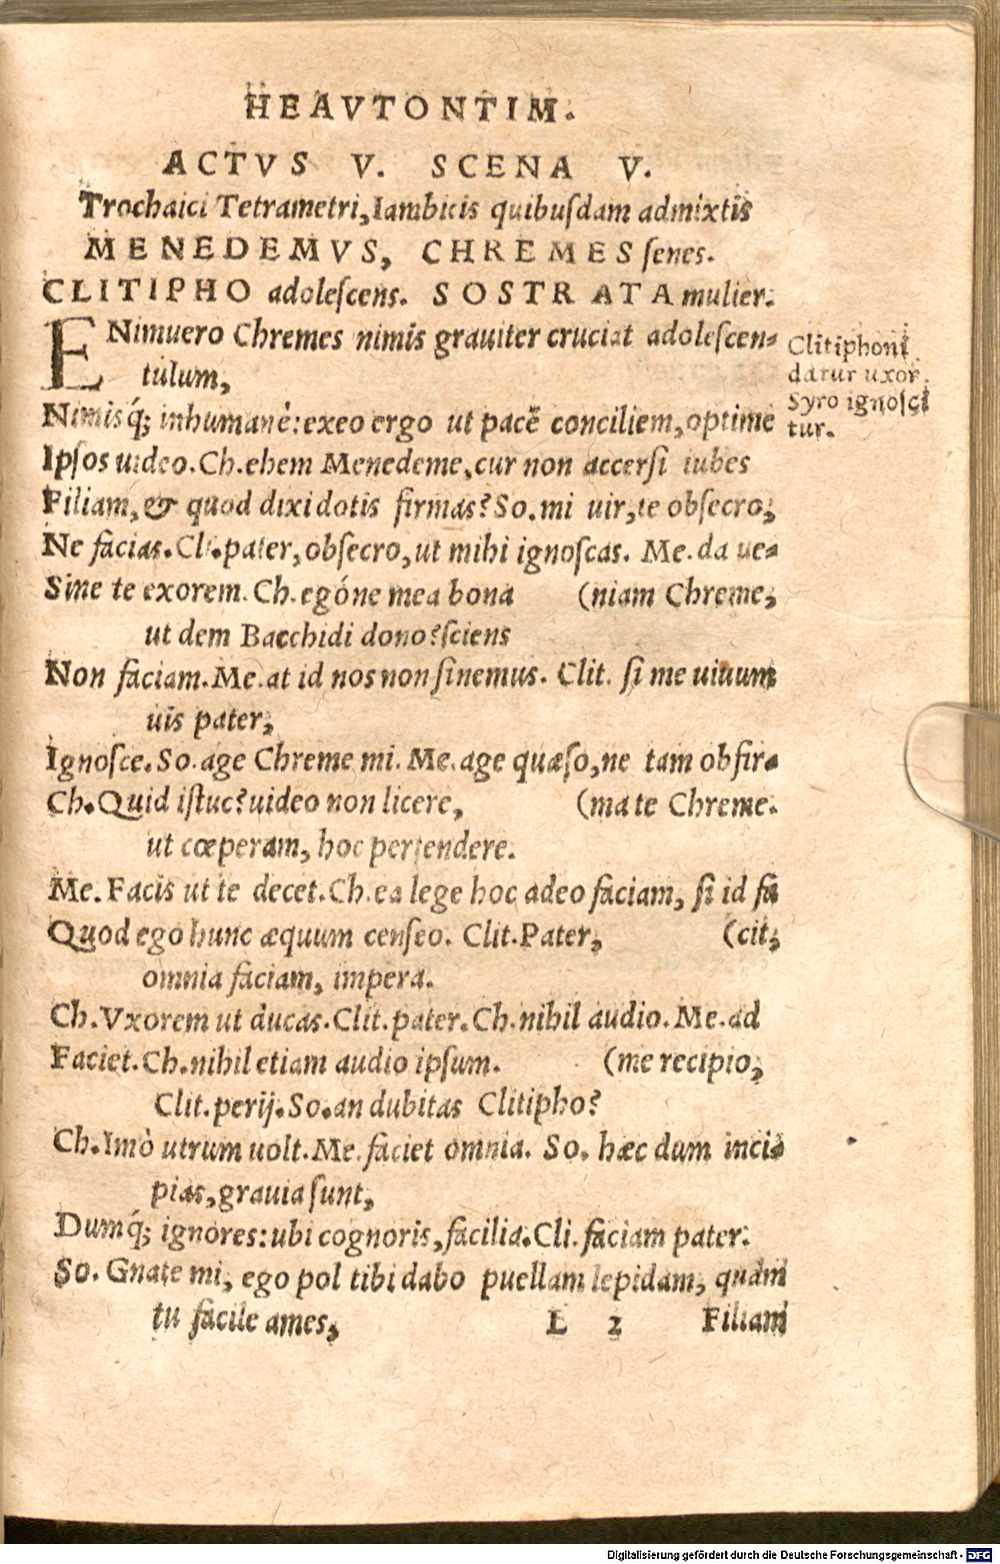 HEAVTONTIM.
ACTVS V. SCENA V.
Trochaici Tetrametri, Iambicis quibuſdam admixtis
MENEDEMVS, CHREMES ſenes.
CLITIPHO adoleſcens. SOSTRATA mulier.
ENimuero Chremes nimis grauiter cruciat adoleſcen-
tulum,
Nimisq́; inhumanè: exeo ergo ut pacẽ conciliem, optime
Ipſos uideo. Ch. ehem Menedeme, cur non accerſi iubes
Filiam, & quod dixi dotis firmas? So. mi uir, te obſecro,
Ne facias. Cli. pater, obſecro, ut mihi ignoſcas. Me. da ue-
Sine te exorem. Ch. egóne mea bona (niam Chreme,
ut dem Bacchidi dono? ſciens
Non faciam. Me. at id nos non ſinemus. Clit. ſi me uiuum
uis pater,
Ignoſce. So. age Chreme mi. Me. age quæſo, ne tam obfir-
Ch. Quid iſtuc? uideo non licere, (ma te Chreme.
ut cœperam, hoc pertendere.
Me. Facis ut te decet. Ch. ea lege hoc adeo faciam, ſi id fa
Quod ego hunc æquum cenſeo. Clit. Pater, (cit,
omnia faciam, impera.
Ch. Vxorem ut ducas. Clit. pater. Ch. nihil audio. Me. ad
Faciet. Ch. nihil etiam audio ipſum. (me recipio,
Clit. perij. So. an dubitas Clitipho?
Ch. Imò utrum uolt. Me. faciet omnia. So. hæc dum inci-
pias, grauia ſunt,
Dumq́; ignores: ubi cognoris, facilia. Cli. faciam pater.
So. Gnate mi, ego pol tibi dabo puellam lepidam, quam
tu facile ames, L 2 Filiam
Clitiphoni
datur uxor.
Syro ignoſci
tur.
Digitalisierung gefördert durch die Deutsche Forschungsgemeinschaft - DFG